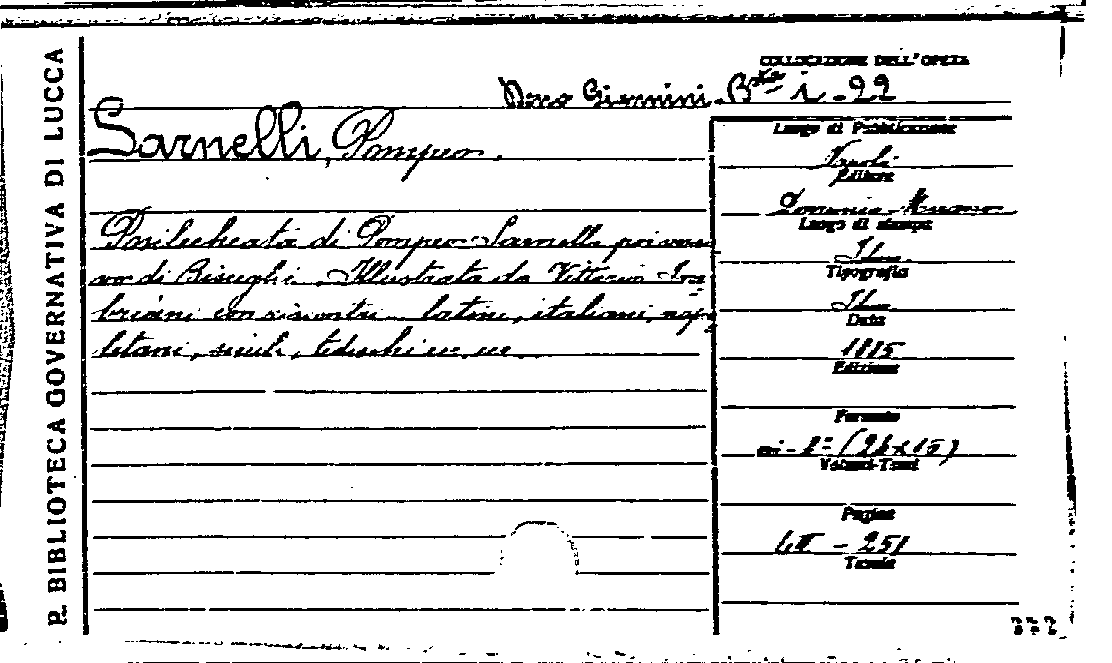 R. BIBLIOTECA GOVERNATIVA DI LUCCA
COLLOCAZIONE DELL'OPERA
Dono Giannini. B.ta i. 22
Sarnelli, Pompeo.
Posilecheata di Pompeo Sarnelli
vo di Bisceglie. Illustrata da Vittorio Im=
briani con riscontri latini, italiani, nap=
letani, sicili, tedeschi ecc ecc
Luogo di Pubblicazione
Napoli
Editore
Domenico Morano
Luogo di stampa
Id.
Tipografia
Id.
Data
1885
Edizione
Formato
in-8° (26x15)
Volumi-Tomi
Pagine
- 251
Tavole